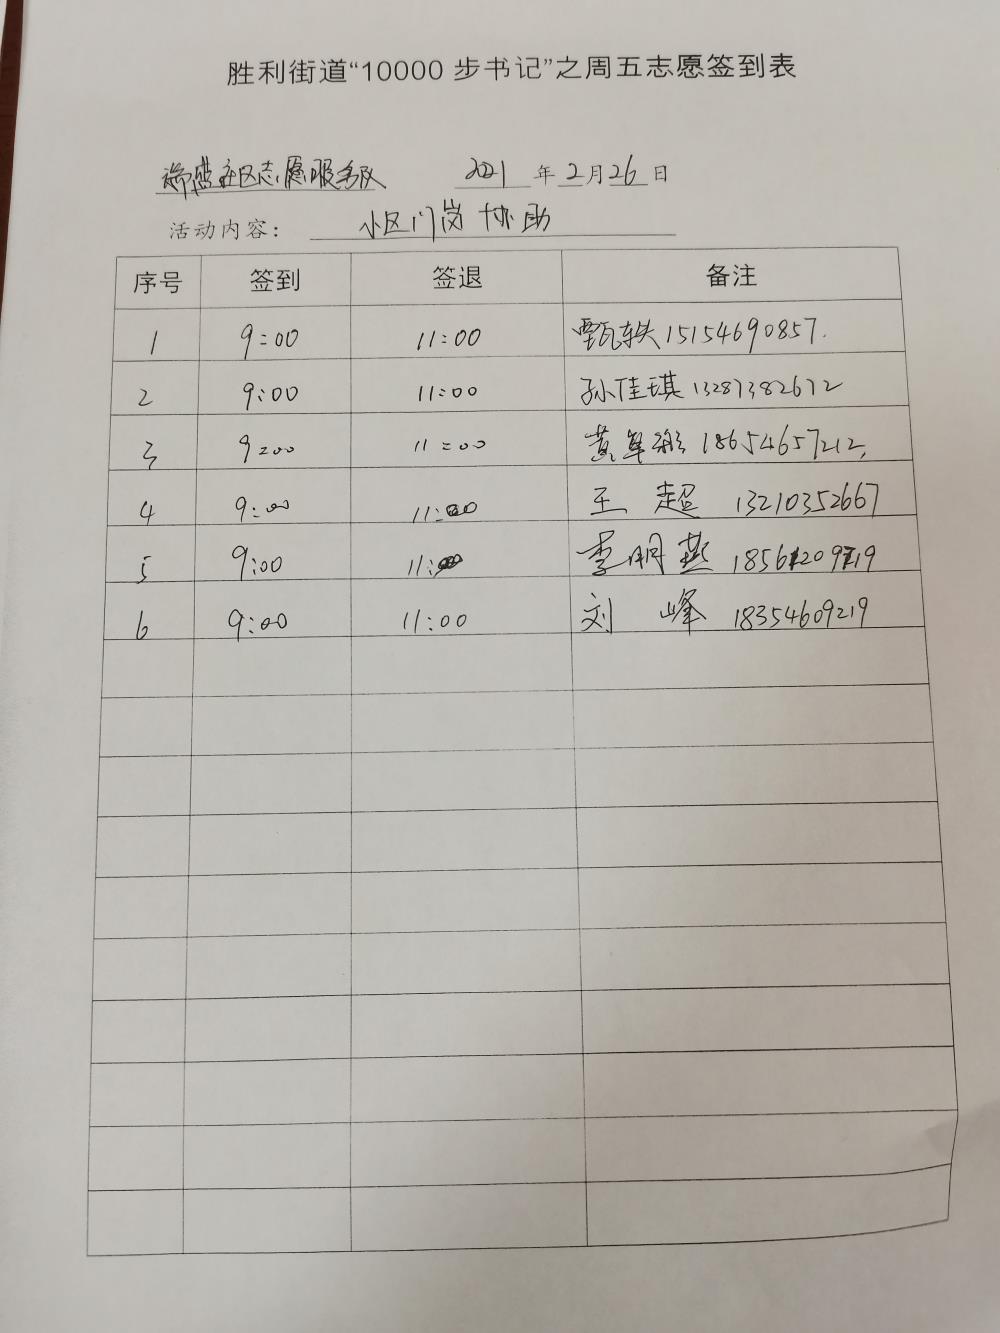 胜利街道“10000 步书记”之周五志愿签到表
社区志愿服务队 2021 年 2 月 26 日
活动内容： 小区门岗协助
序号 签到 签退 备注
1 9:00 11:00 甄轶 15154690857.
2 9:00 11:00 孙佳琪 13287382672
3 9:00 11:00 黄 18654657212,
4 9:00 11:00 王超 13210352667
5 9:00 11:00 李明燕 18561209719
6 9:00 11:00 刘峰 18354609219